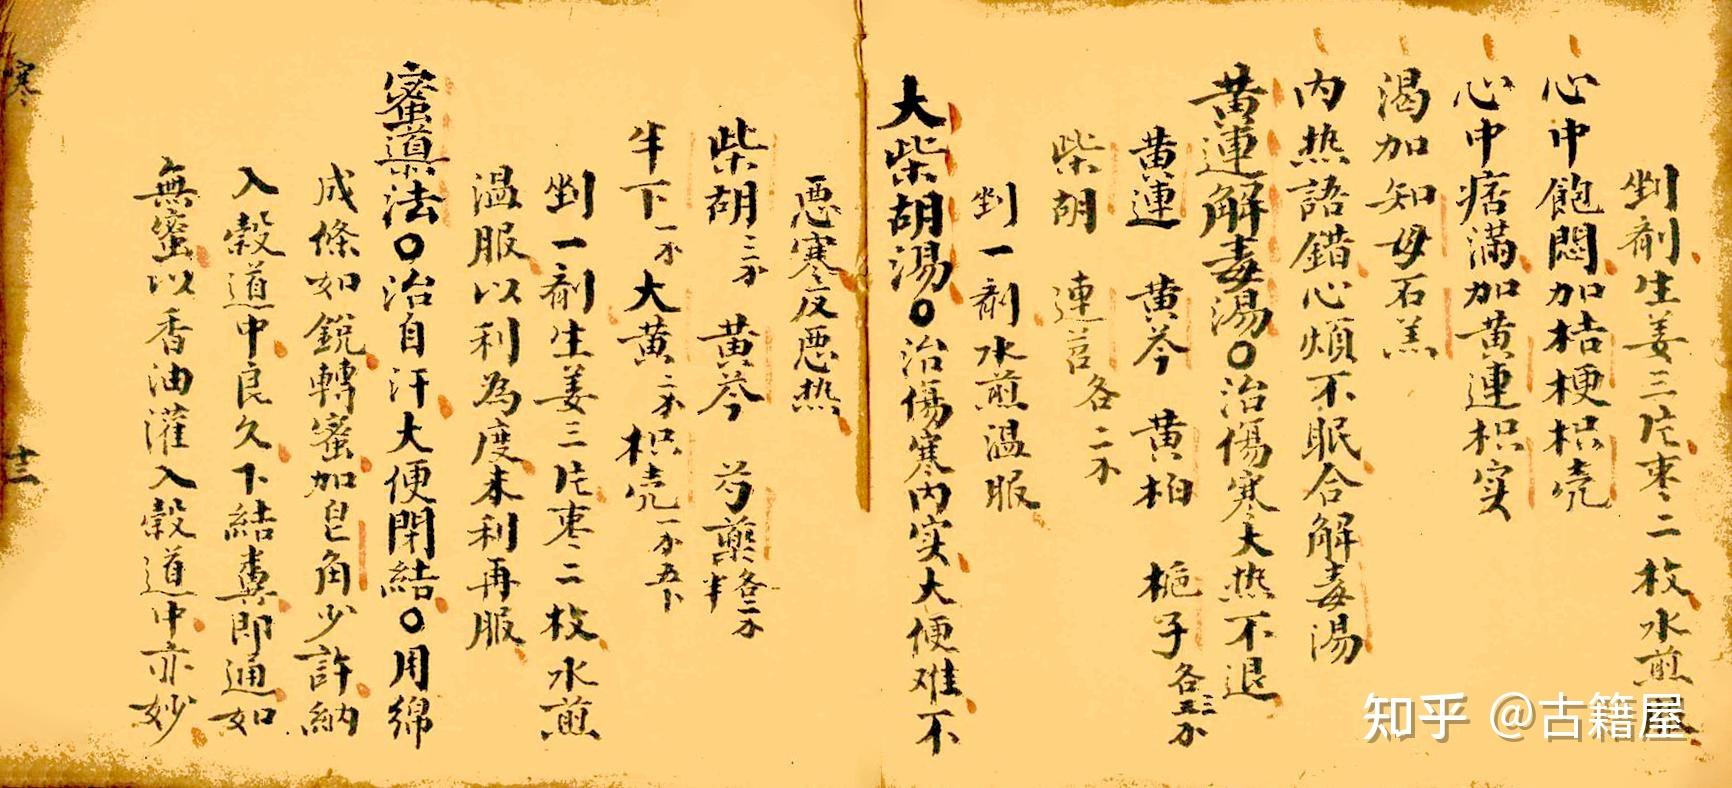 剉剤生姜三片枣二枚水煎服
心中飽悶加桔梗枳壳
心中痞满加黄連枳实
渴加知母石羔
内热語錯心煩不眠合解毒湯
黄連解毒湯〇治傷寒大热不退
黄連 黄芩 黄柏 栀子各二三分
柴胡 連召各二分
剉一剤水煎温服
大柴胡湯〇治傷寒内实大便难不
悪寒反悪热
柴胡二分 黄芩 芍藥各二分半
半下一分 大黄二分 枳壳一分五下
剉一剤生姜三片枣二枚水煎
温服以利為度未利再服
蜜導法〇治自汗大便閉結〇用綿
成條如銳轉蜜加皂角少許納
入穀道中良久下結糞即通如
無蜜以香油灌入穀道中亦妙
寒
十三
知乎 @古籍屋